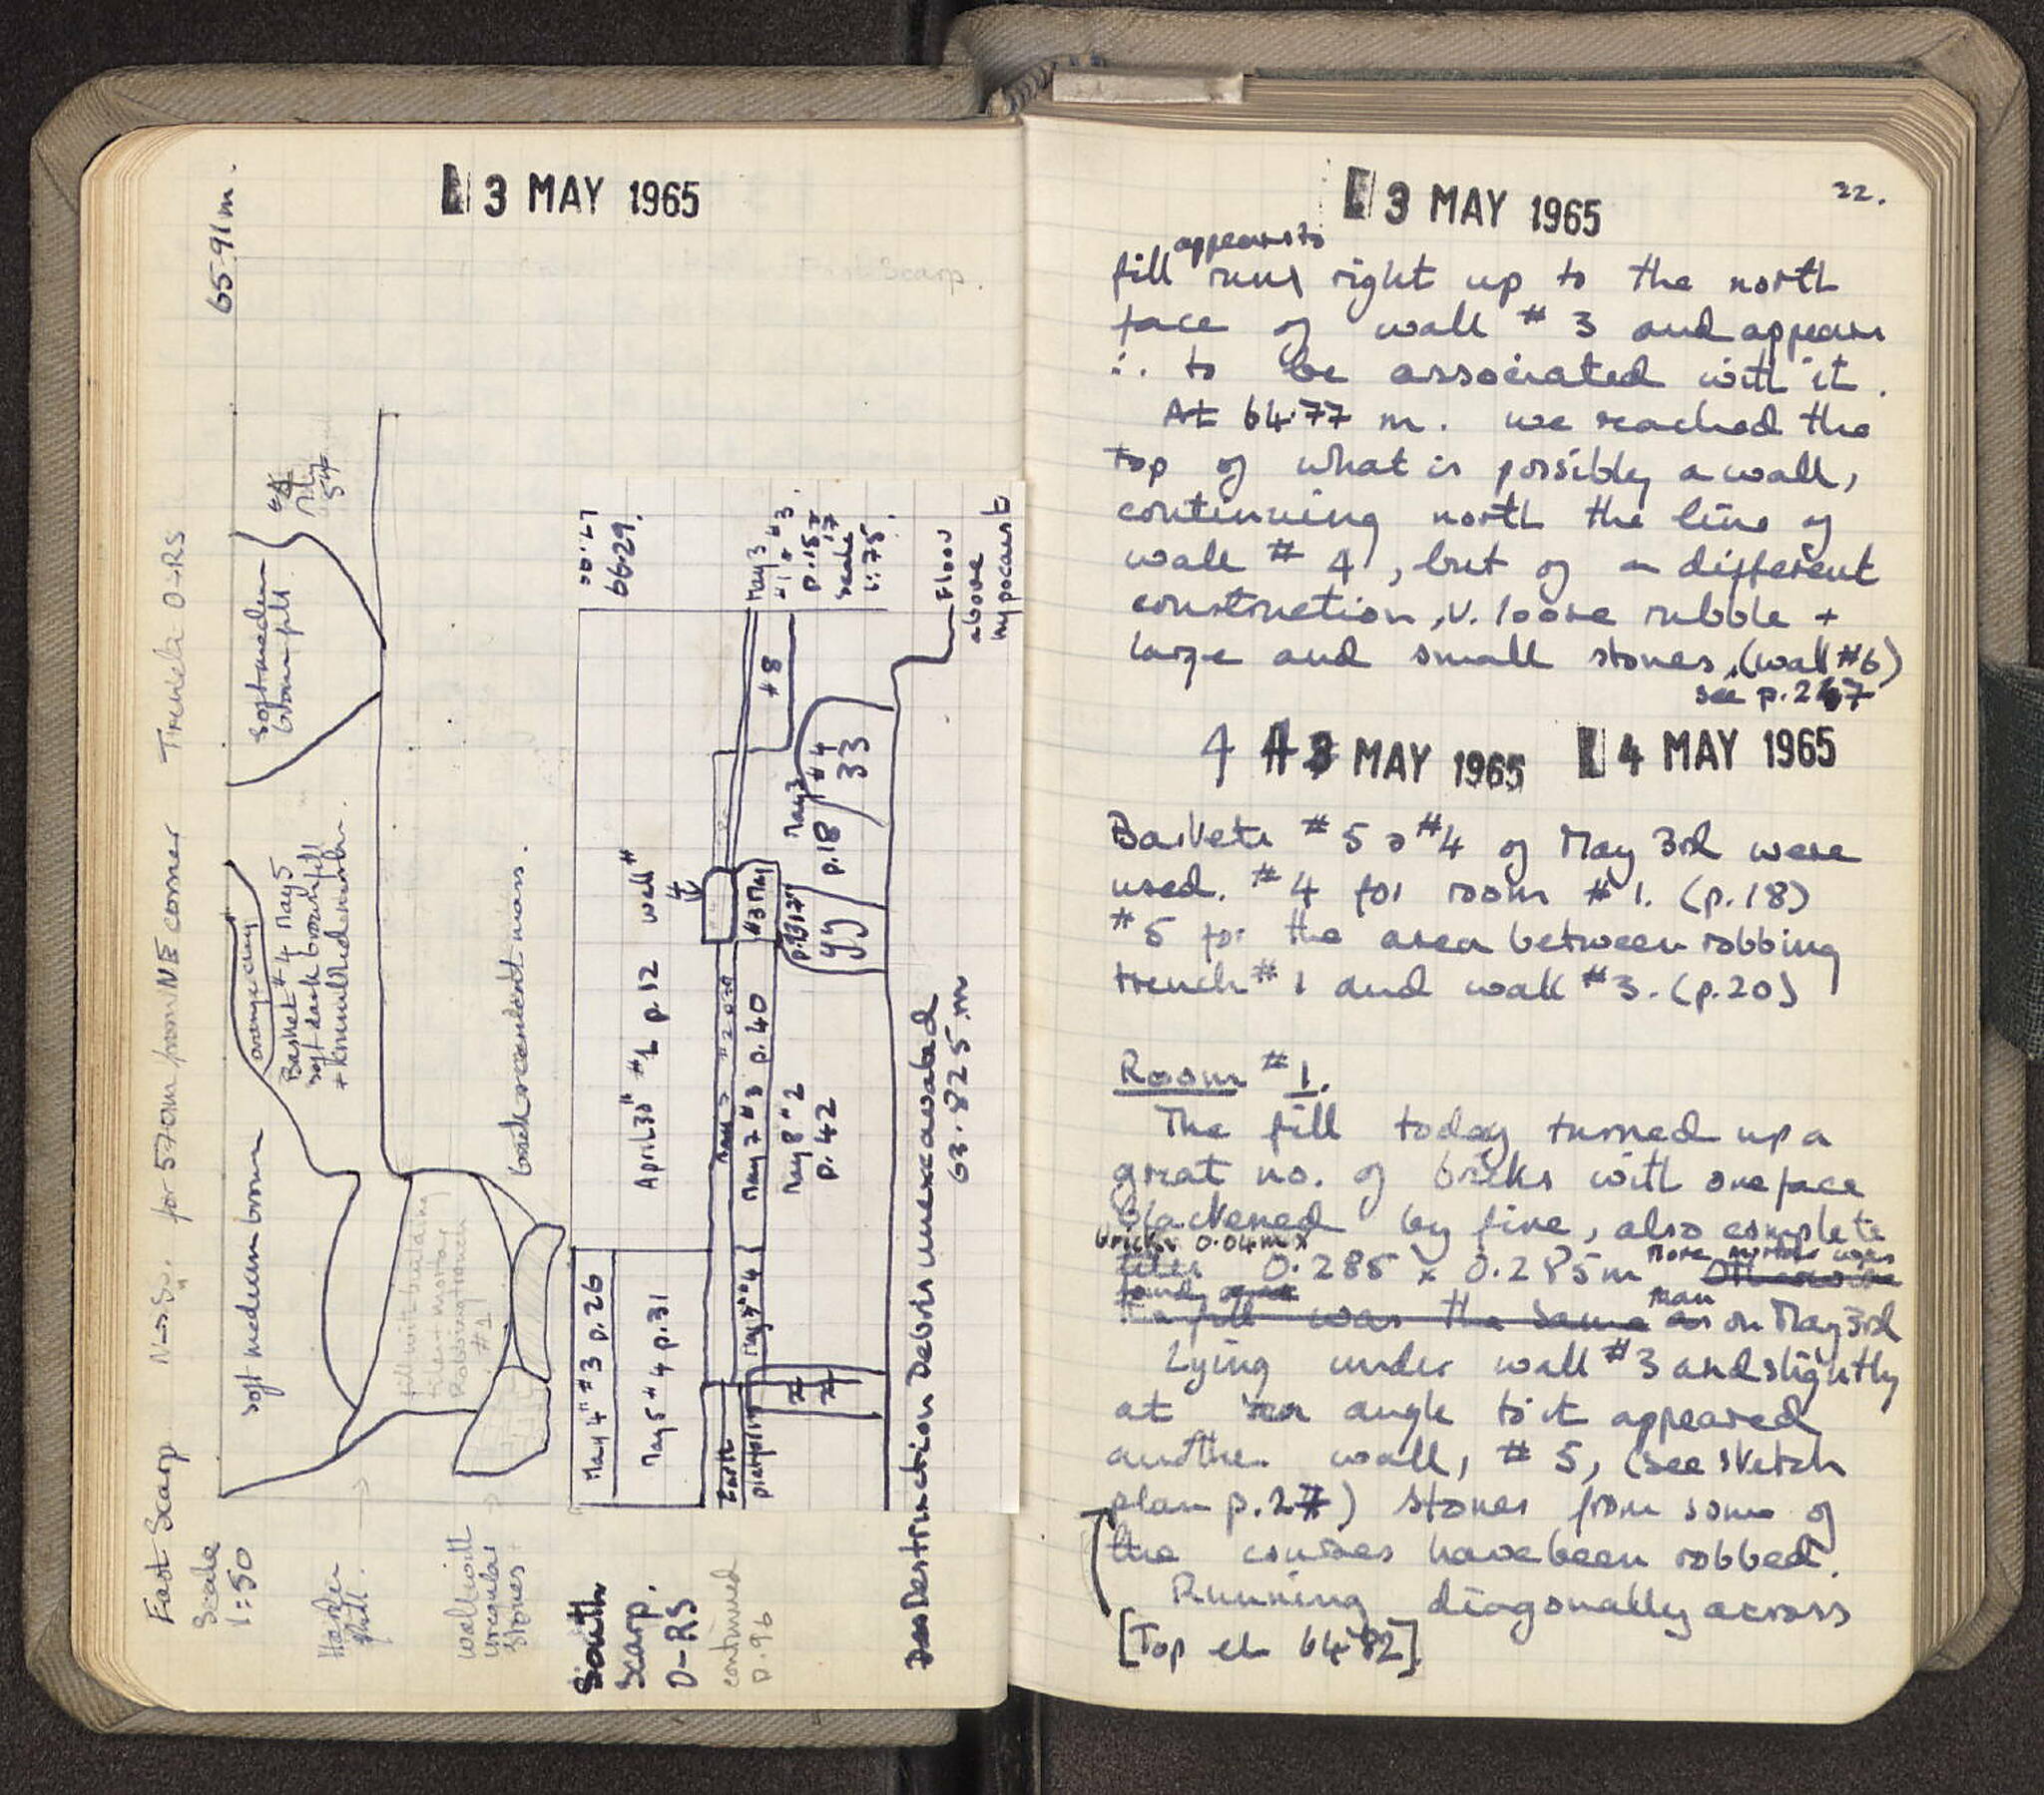 3 MAY 1965
65.91m.
East Scarp N-S. for 5.70m from NE corner Trench O-RS
Scale
1:50
soft medium brown
orange clay
Basket #4 May 5
soft dark brown fill
Soft medium
brown fill.
Harder
fill.
wall with
irregular
stones
fill with
Robbing trench
#1
South
Scarp.
O-RS
continued
p. 96
66.29.
May 4 #3 p. 26
May 5 #4 p. 31
April 30 #1 p. 12 wall #
4
May 7 #3 p. 40
May 8 #2
p. 42
May 7 #4
#3 May
#8
May 3
p. 18
#4
33
May 3
#1 + #3
p. 15, 17
scale
1:75.
Earth
Floor
above
hypocaust
Destruction Debris unexcavated
63.825 m
3 MAY 1965
22.
appears to
fill runs right up to the north
face of wall #3 and appears
∴ to be associated with it.
At 64.77 m. we reached the
top of what is possibly a wall,
continuing north the line of
wall #4, but of a different
construction, v. loose rubble +
large and small stones, (wall #6)
see p. 27
4 MAY 1965 4 MAY 1965
Baskets #5 #4 of May 3rd were
used. #4 for room #1. (p. 18)
#5 for the area between robbing
trench #1 and wall #3. (p. 20)
Room #1.
The fill today turned up a
great no. of bricks with one face
blackened by fire, also complete
bricks 0.04m x
tiles 0.285 x 0.285m More mortar was
found Otherwise
the fill was the same as than on May 3rd
Lying under wall #3 and slightly
at an angle to it appeared
another wall, #5, (see sketch
plan p. 27) stones from some of
the courses have been robbed.
Running diagonally across
[Top el. 64.82]